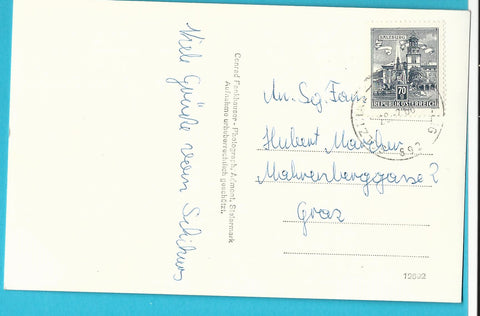 Viele Grüße vom Schikurs
Conrad Fankhauser - Photograph, Admont, Steiermark
Aufnahme urheberrechtlich geschützt.
SALZBURG
70
REPUBLIK ÖSTERREICH
892
An Sg. Fam.
Hubert
Mahrenberggasse 2
Graz
12092